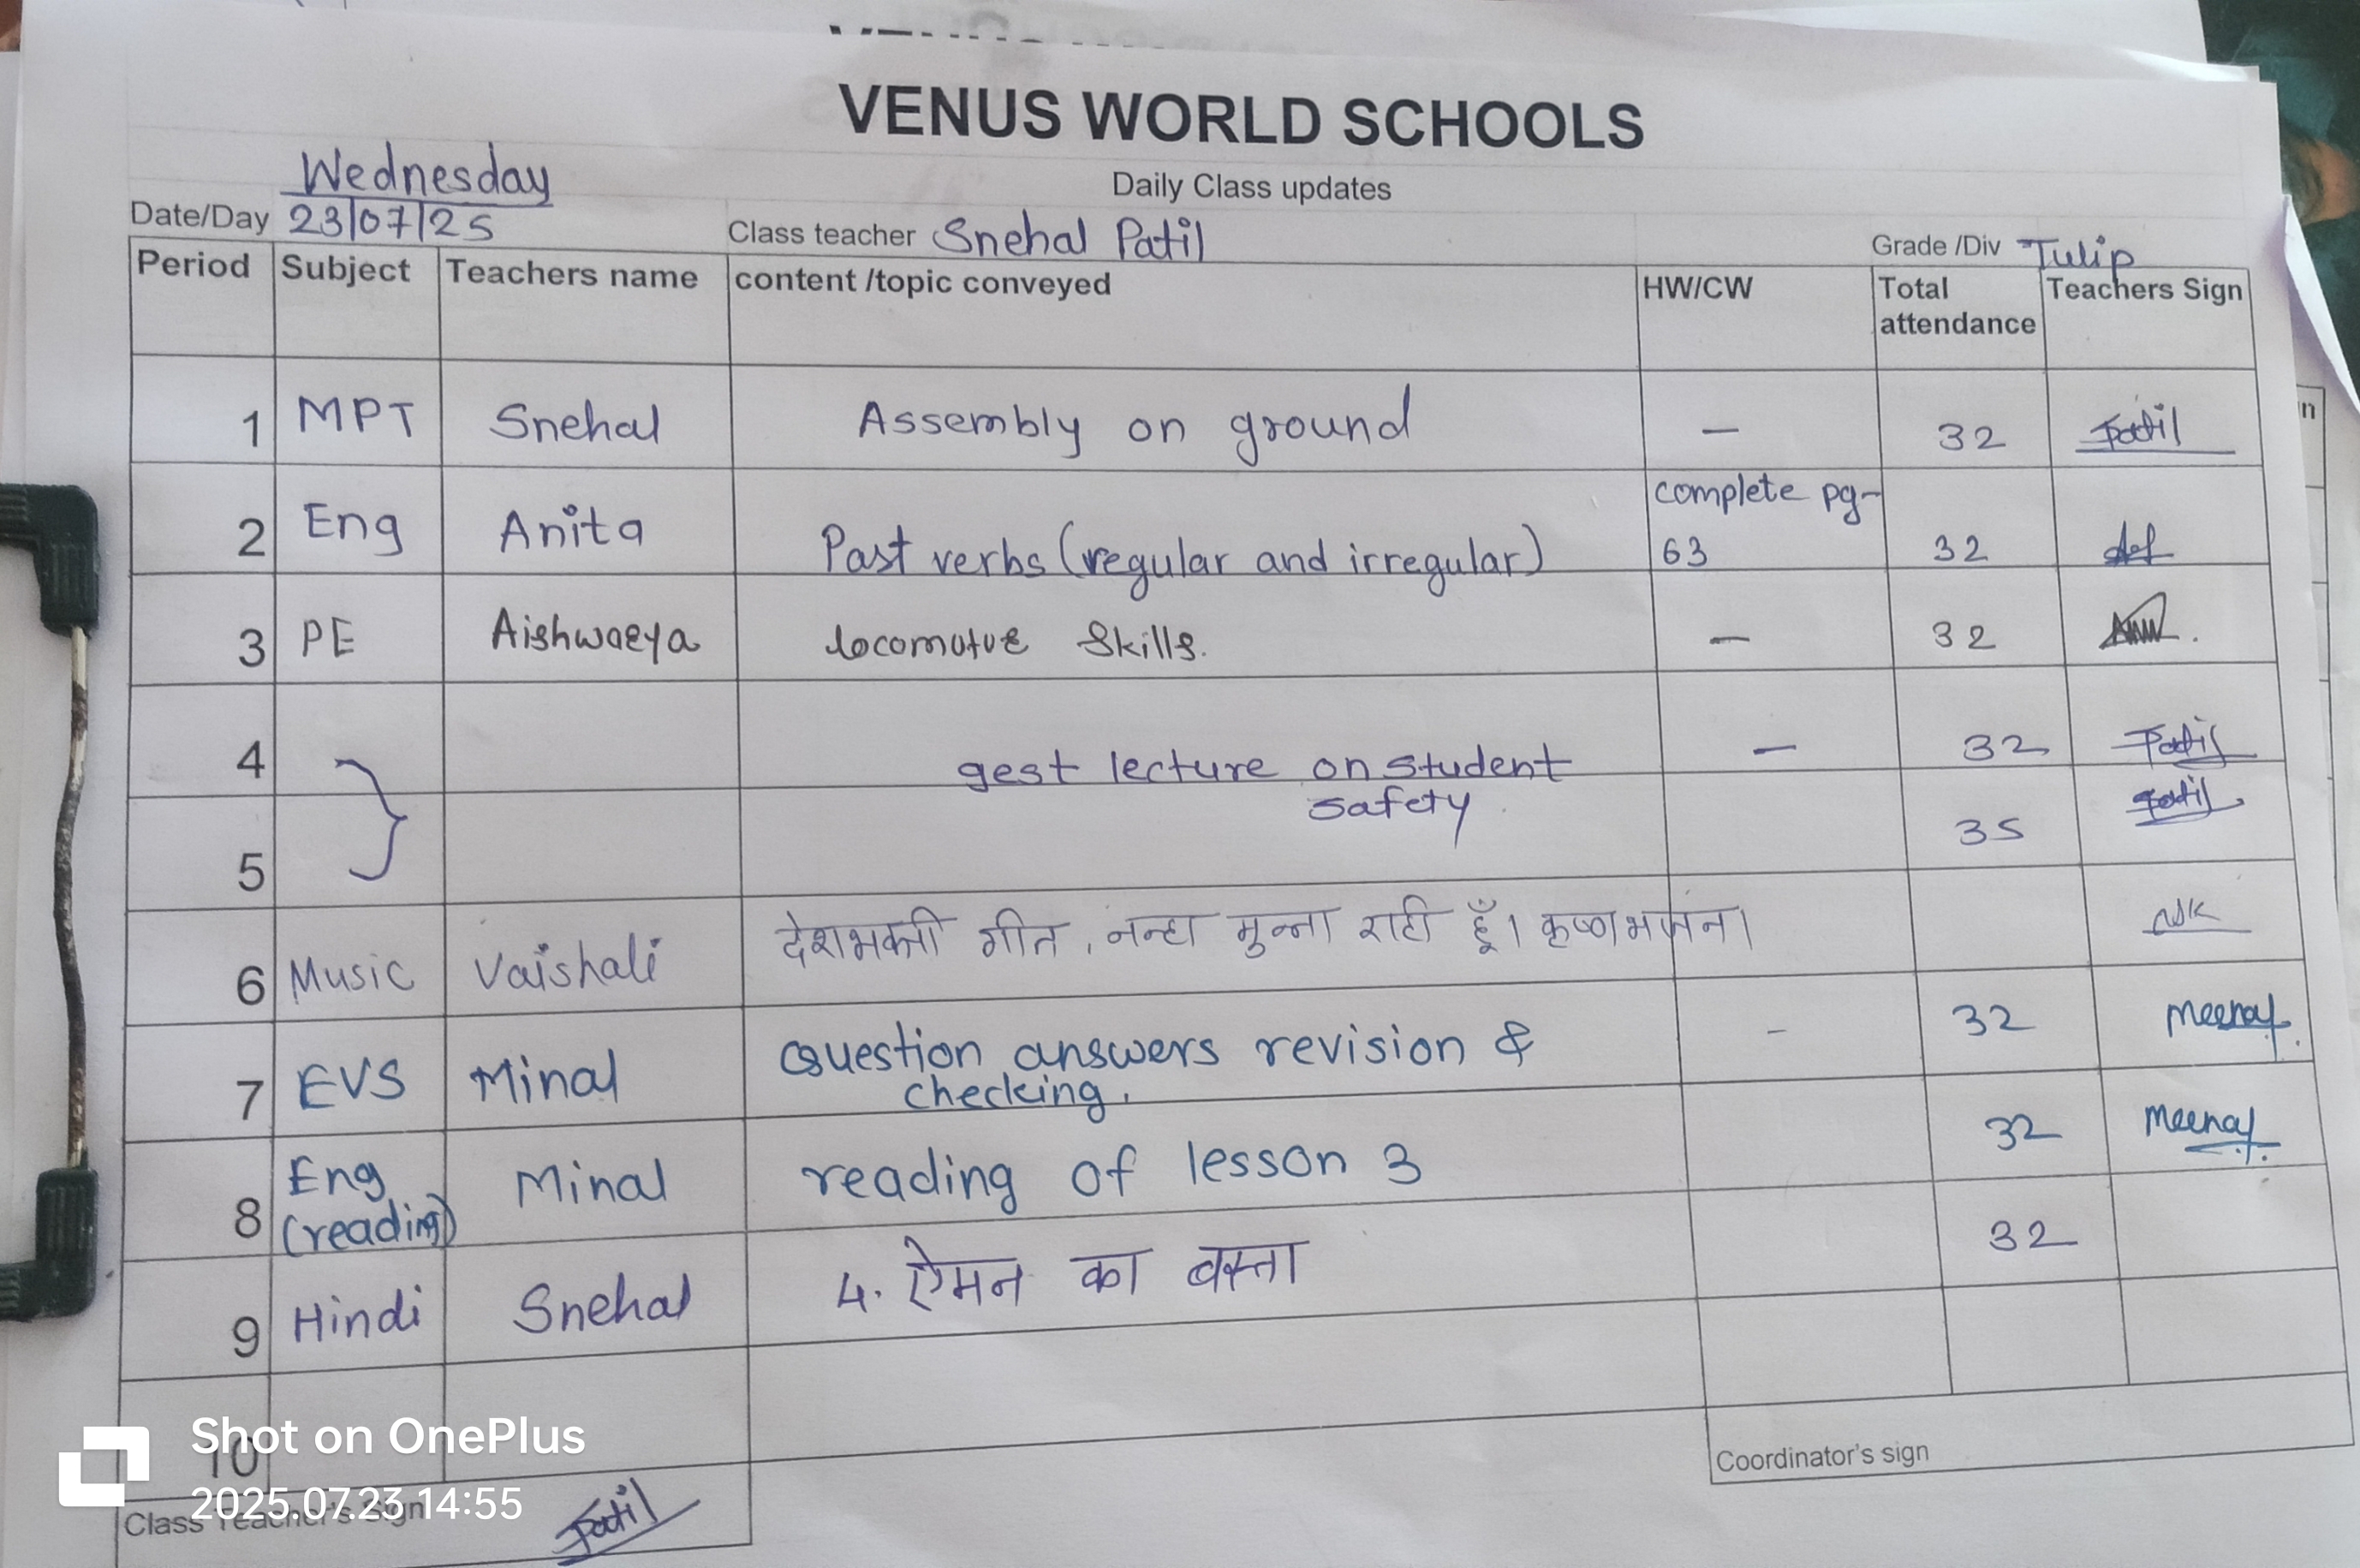 VENUS WORLD SCHOOLS
Daily Class updates
Wednesday
Date/Day 23/07/25 Class teacher Snehal Patil Grade /Div Tulip
Period Subject Teachers name content /topic conveyed HW/CW Total attendance Teachers Sign
1 MPT Snehal Assembly on ground — 32 Patil
2 Eng Anita Past verbs (regular and irregular) complete pg- 63 32
3 PE Aishwarya locomotve Skills. — 32
4 gest lecture on student — 32 Patil
safety
5 35 Patil
6 Music Vaishali देशभक्ती गीत, नन्हा मुन्ना राही हूँ। कृष्णभजन।
7 EVS Minal Question answers revision & - 32
checking.
8 Eng (reading) Minal reading of lesson 3 32
9 Hindi Snehal 4. ऐमन का बस्ता 32
10
Class Teacher's Sign Patil
Coordinator's sign
Shot on OnePlus
2025.07.23 14:55